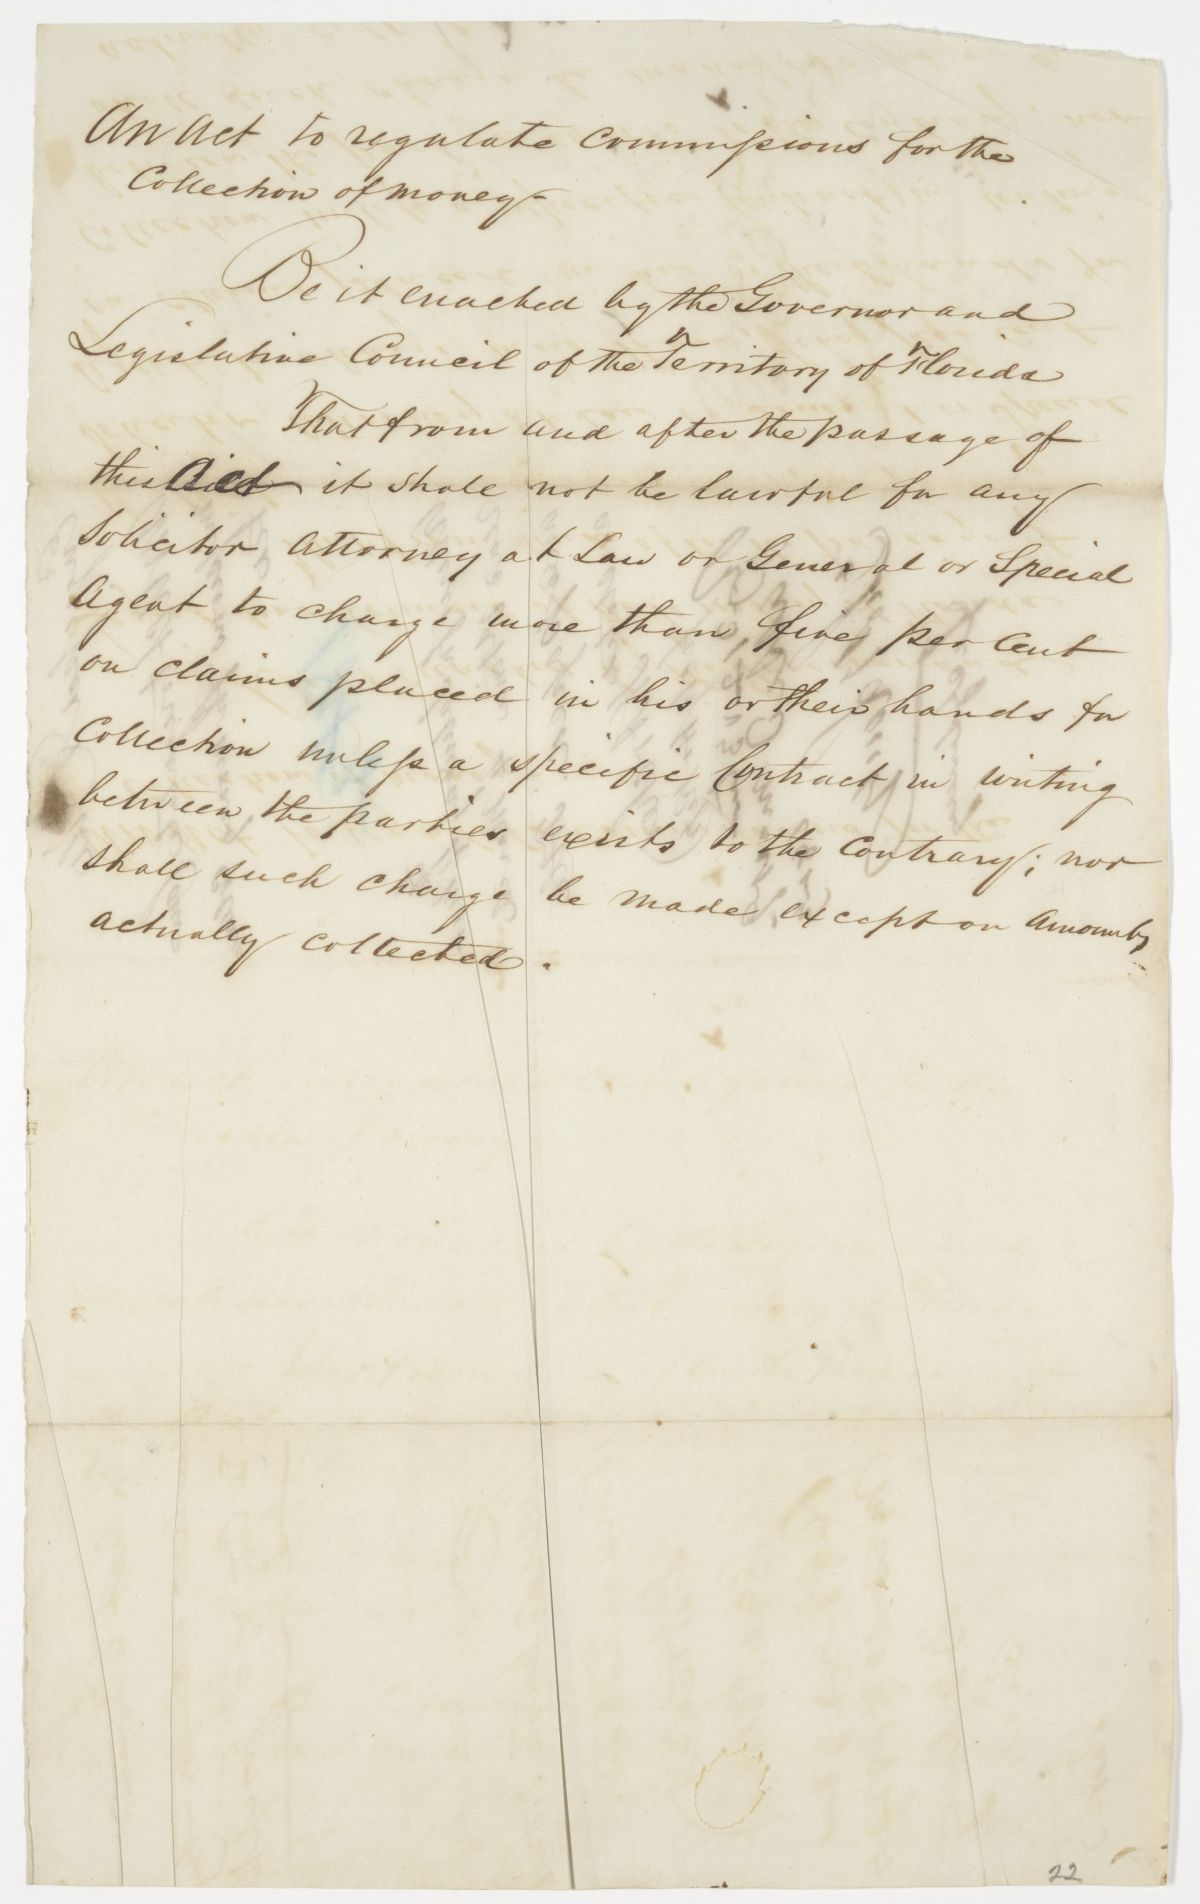 An Act to regulate Commissions for the
Collection of money-
Be it enacted by the Governor and
Legislative Council of the Territory of Florida
That from and after the passage of
this Act it shall not be lawful for any
Solicitor Attorney at Law or General or Special
Agent to charge more than five per cent
on claims placed in his or their hands for
Collection unless a specific Contract in writing
between the parties exists to the Contrary; nor
shall such charge be made except on Amounts
actually collected.
22